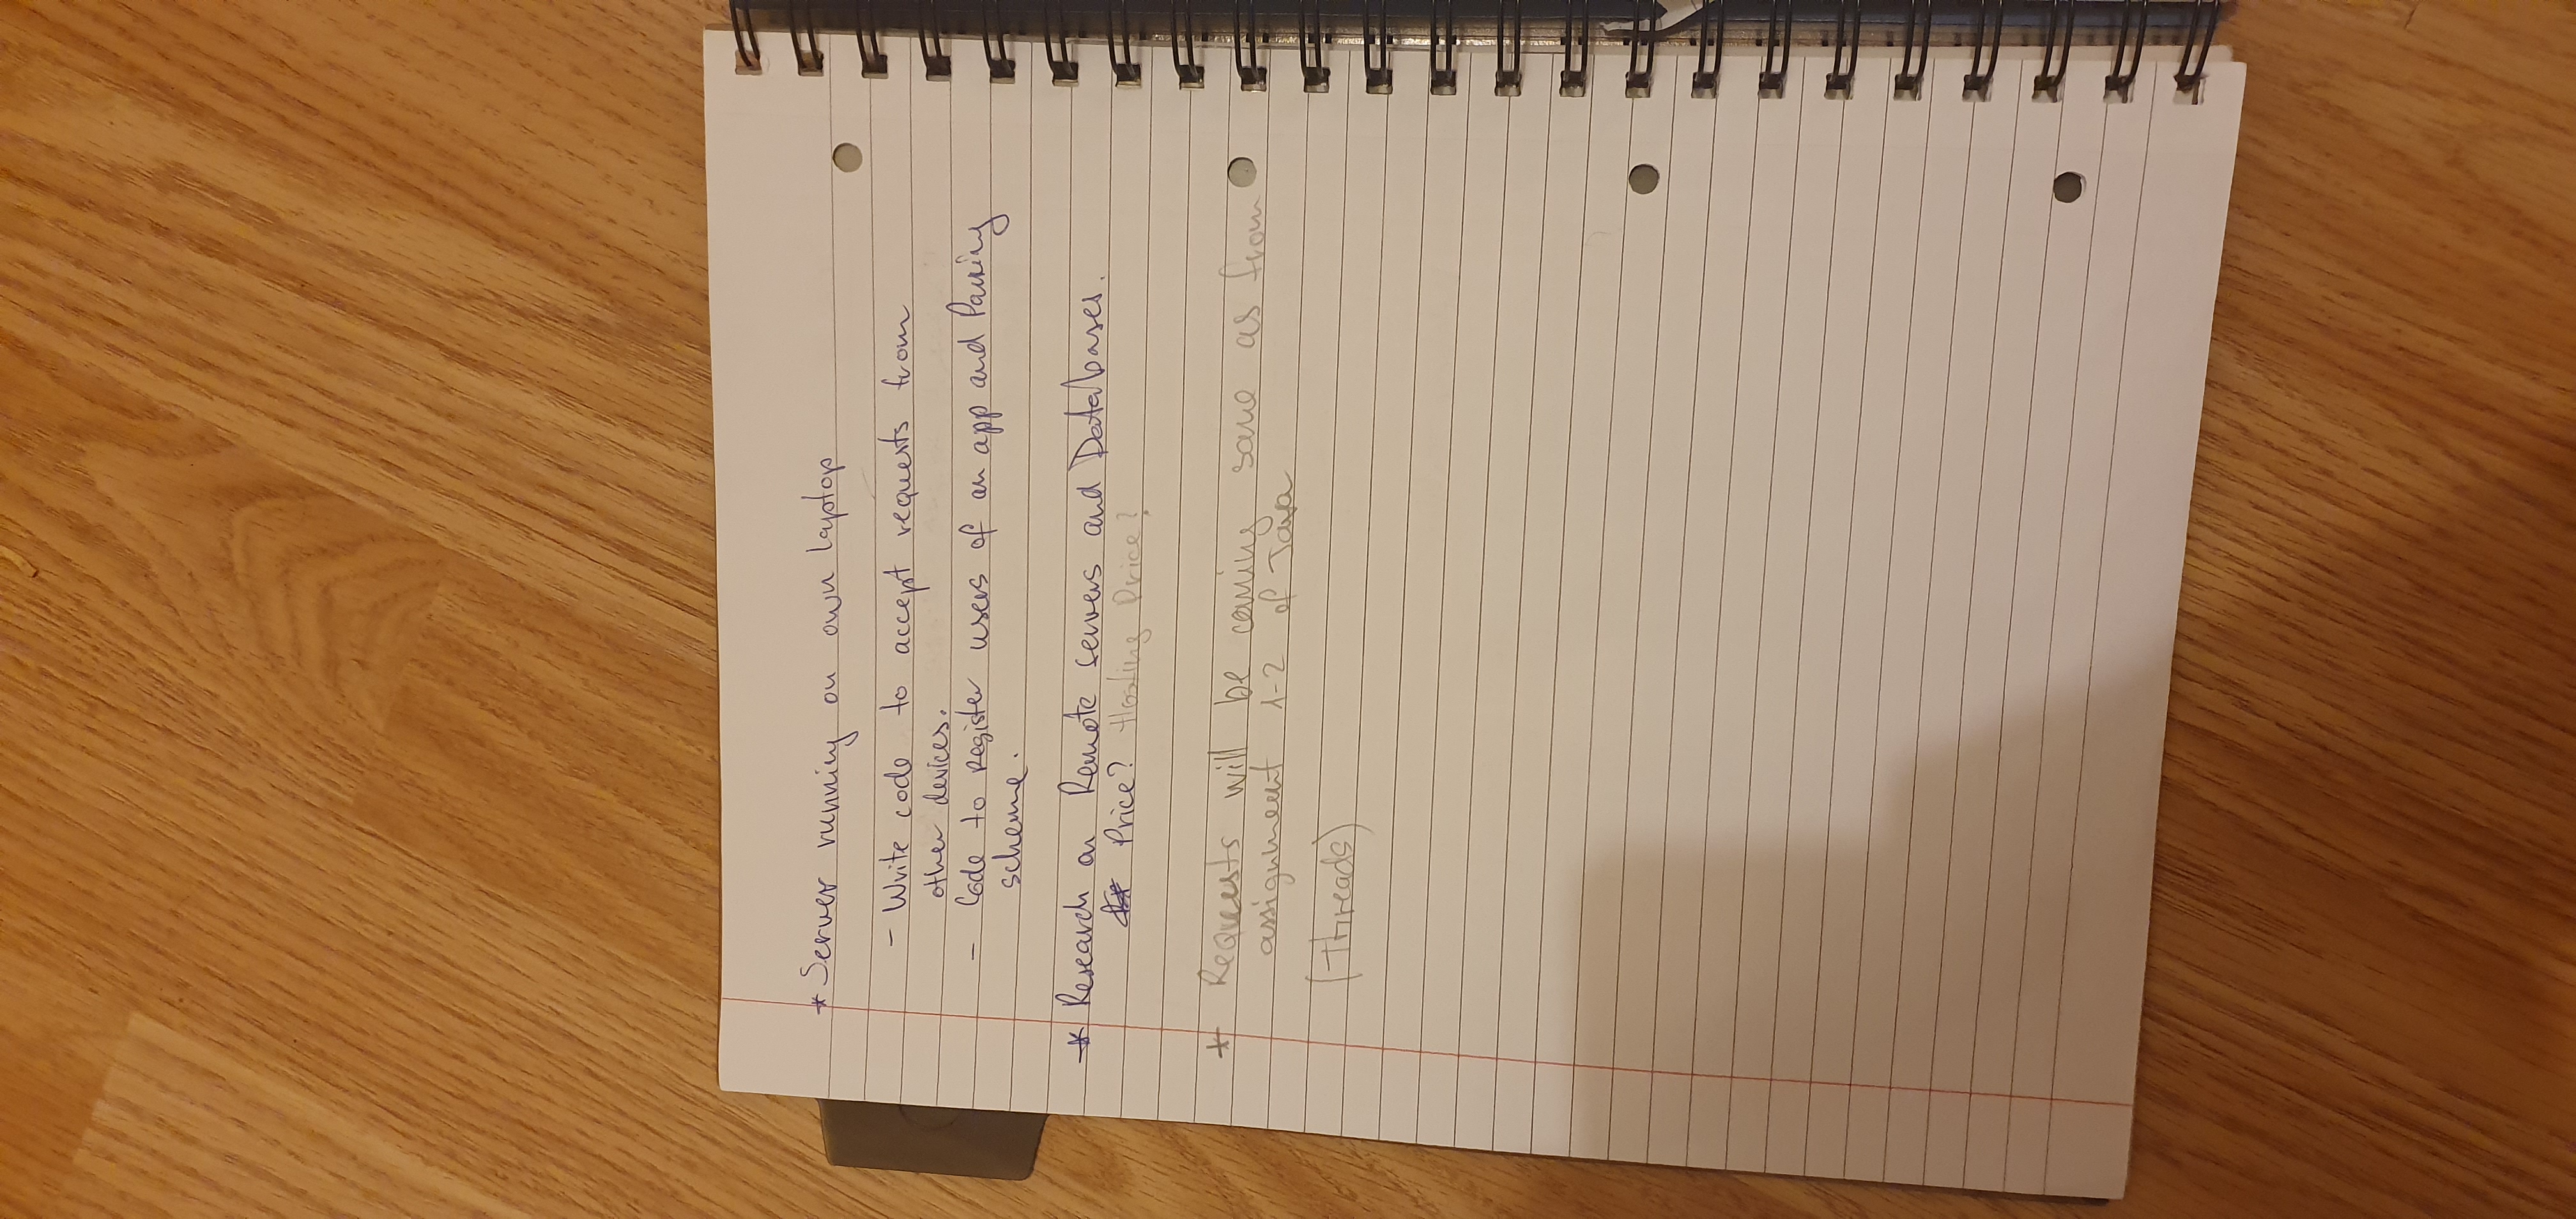 * Server running on own laptop
- Write code to accept requests from
other devices.
- Code to register users of an app and Pairing
scheme.
* Research on Remote servers and Databases.
Price? Hosting Price?
* Requests will be coming same as from
assignment 1-2 of Java
(Threads)